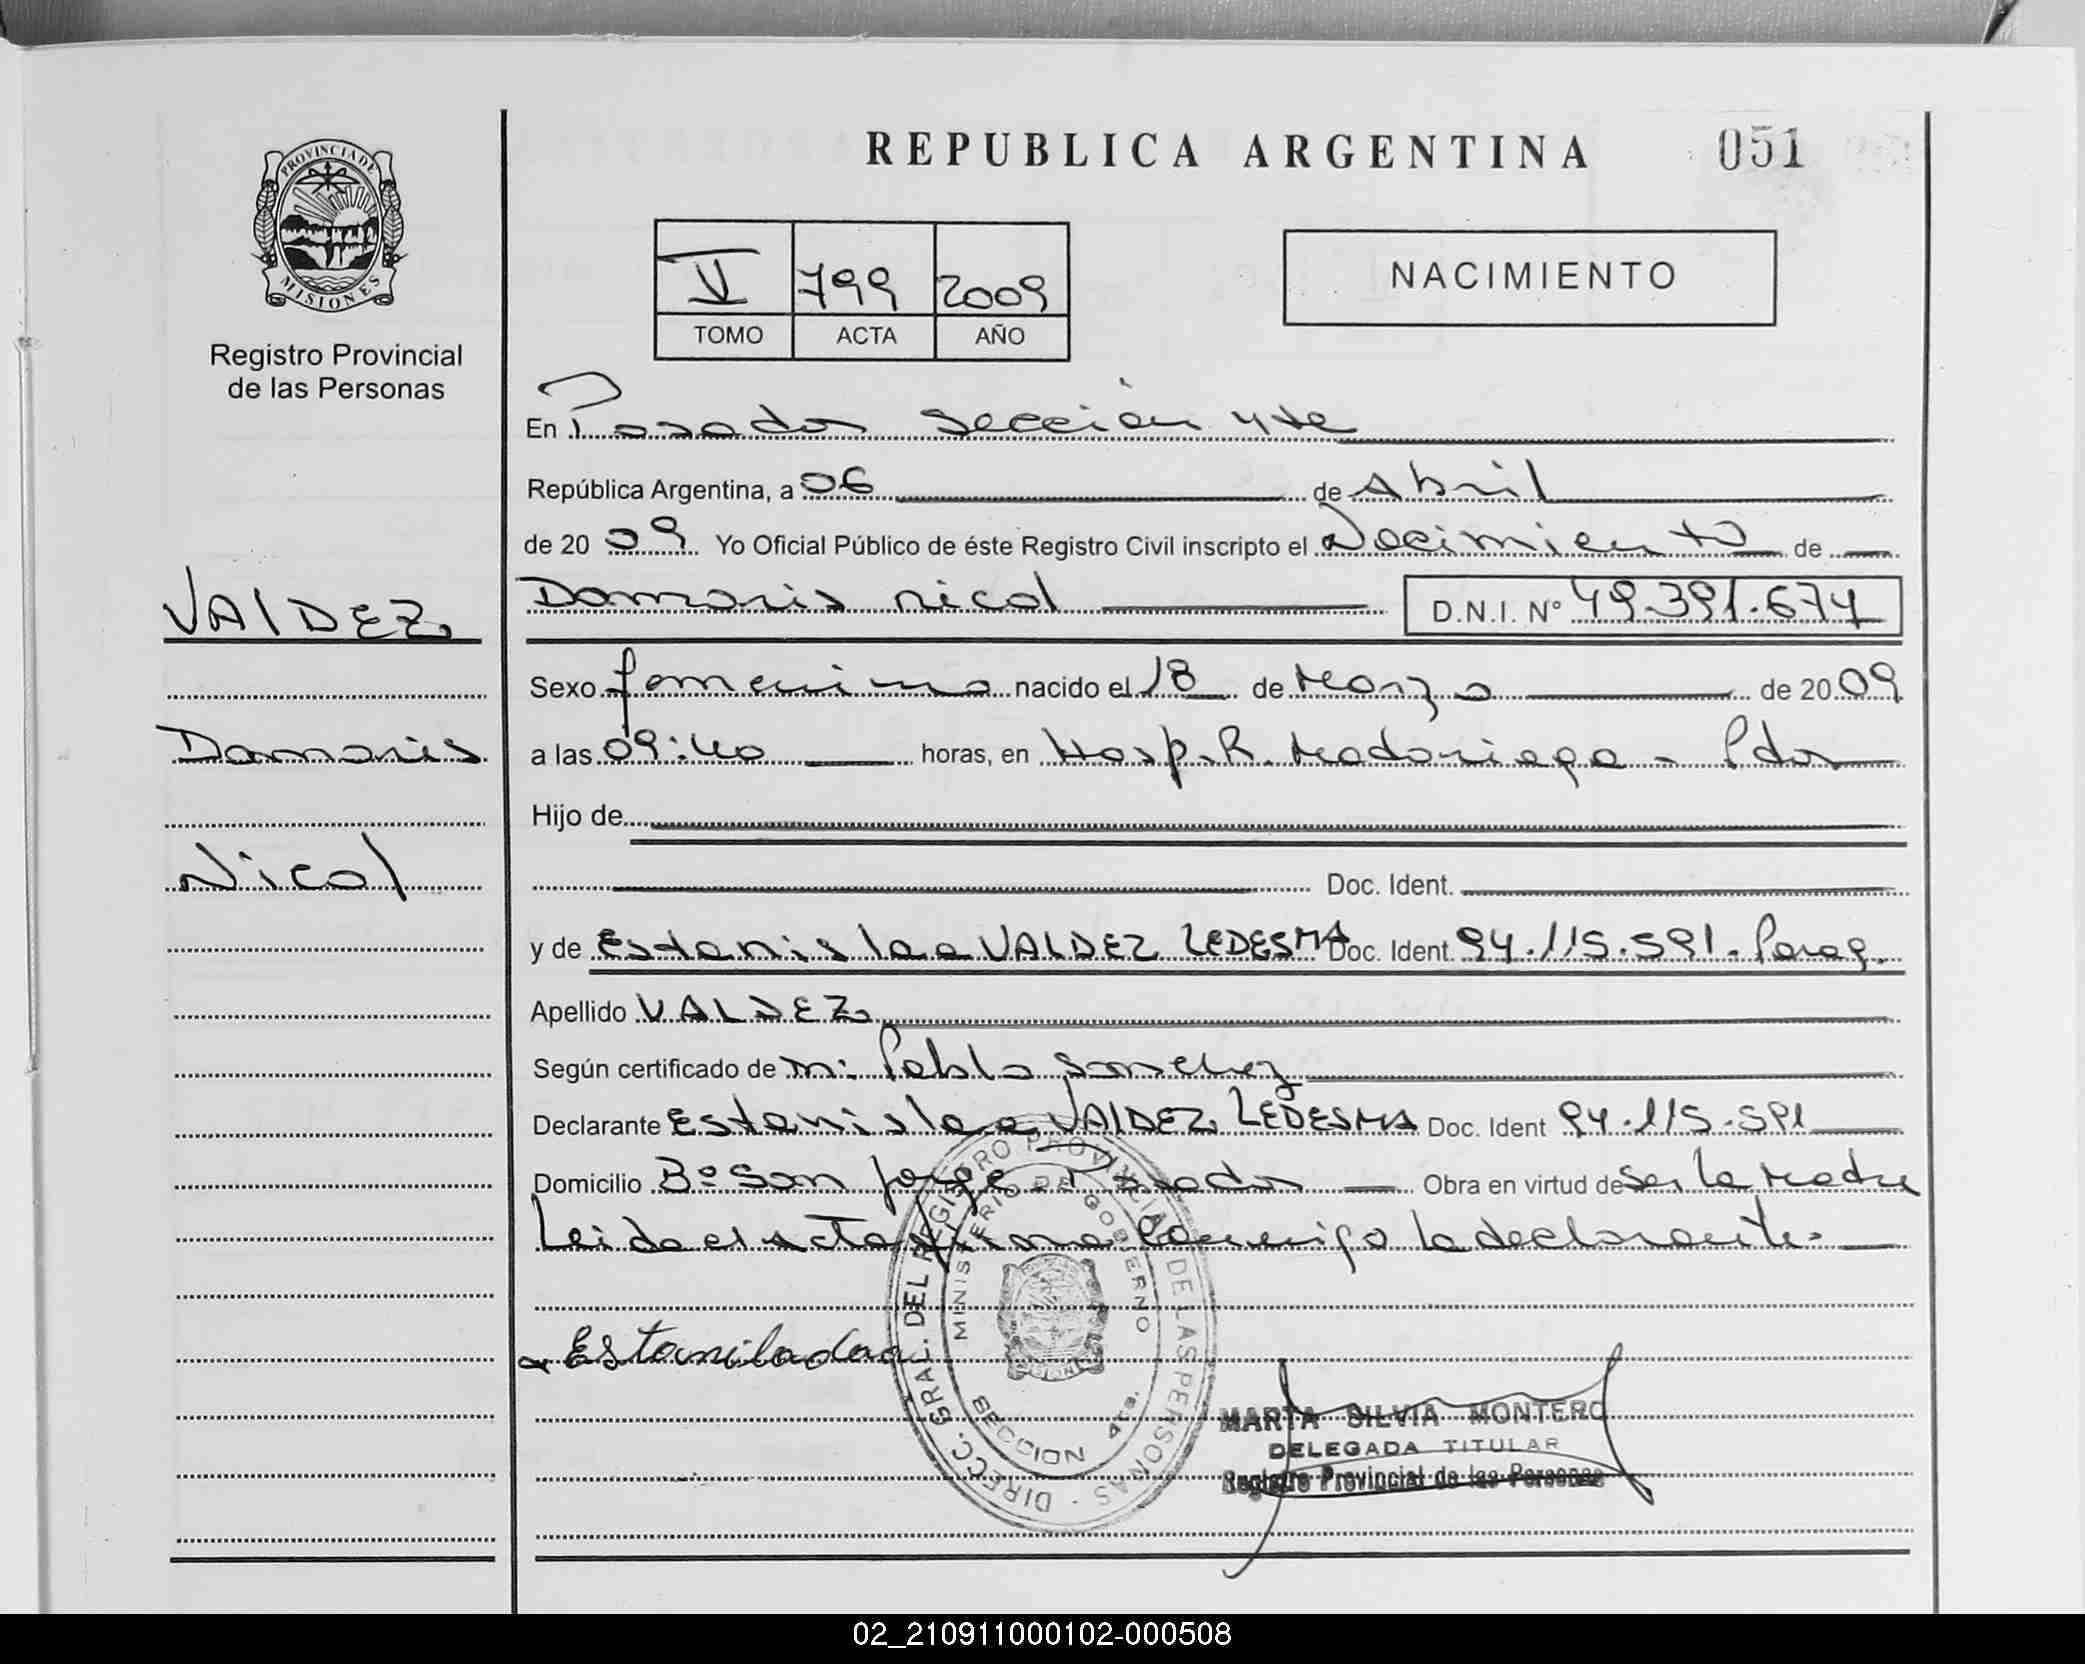 REPUBLICA ARGENTINA 051
PROVINCIA DE
MISIONES
Registro Provincial
de las Personas
V 799 2009
TOMO ACTA AÑO
NACIMIENTO
En Posadas Sección 4ta
República Argentina, a 06 de Abril
de 2009 Yo Oficial Público de éste Registro Civil inscripto el Nacimiento de
VALDEZ
Damaris Nicol D.N.I. Nº 49.391.674
Sexo femenino nacido el 18 de Marzo de 2009
Damaris
a las 09:40 horas, en Hosp. R. Madariaga - Pdas
Hijo de
Nicol
Doc. Ident.
y de Estanislaa VALDEZ LEDESMA Doc. Ident. 94.115.591. Parag.
Apellido VALDEZ
Según certificado de M: Pablo Sanchez
Declarante Estanislaa VALDEZ LEDESMA Doc. Ident 94.115.591
Domicilio Bº San Jorge - Posadas Obra en virtud de ser la Madre
Leida el acta firma conmigo la declarante.
DIRECC. GRAL. DEL REGISTRO PROVINCIAL DE LAS PERSONAS
MINISTERIO DE GOBIERNO
SECCION 4ta.
MARTA SILVIA MONTERO
DELEGADA TITULAR
Registro Provincial de las Personas
02_210911000102-000508